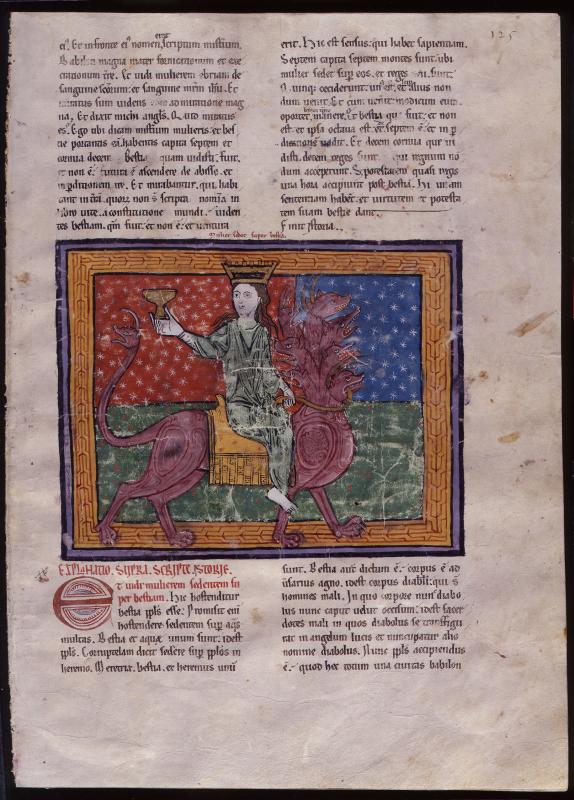 ei᷒. Et in fronte ei᷒ nomen scriptum misterium.
Babilon magna mater fornicationum et exe
crationum t̄re. Et vidi mulierem ebriam de
sanguine scōrum: et sanguine mr̄m ih̄u. Et
miratus sum videns magna
na. Et dixit michi angls̄. Quid miraris
es. Ego tibi dicam misterium mulieris et bes
tie portantis eā. habentis capita septem et
cornua decem. Bestia quam vidisti: fuit.
et non ē: futura ē ascendere de abisso. et
in perditionem ire. Et mirabuntur. qui habi
tant in t̄ra. quorū non s̄ scripta nomīa in
libro uite. a constitutione mundi. uiden
tes bestiam. qm̄ fuit. et non ē: et uentura
erit. Hic est sensus: qui habet sapientiam.
Septem capita septem montes sunt: ubi
mulier sedet sup̄ eos. et reges sunt.
Quinque ceciderunt: un᷒ est. et alius non
dum uenit. Et cum uenerit modicum eum
oportet manere. et bestia que fuit: et non
est. et ipsa octaua est. et ē septem ē: et in p̄
ditionē uadit. Et decem cornua que ui
disti. decem reges sunt. qui regnum nō
dum acceperunt. Set potestatem quasi reges
una hora accipiunt post bestiā. Hi unam
sententiam habēt. et uirtutem et potesta
tem suam bestie dant.
Finit istoria.
Mulier sedet super bestiā.
EXPLANATIO. SUPRA. SCRIPTE. ISTORIE.
Et uidi mulierem sedentem su
per bestiam. Hic hostenditur
bestia ppl̄s esse. Promisit eni
hostendere sedentem sup̄ aq̄s
multas. Bestia et aque unum sunt: idest
ppl̄s. Corruptelam dicit sedere sup̄ ppl̄os in
heremo. Meretrix. bestia. et heremus unū
sunt. Bestia aut̄ dictum ē. corpus ē ad
uersarius agno. idest corpus diabli: qui s̄
homines mali. In quo corpore nunc diabo
lus nunc caput uelut occisum: idest sacer
dotes mali in quos diabolus se transfigu
rat in angelum lucis et nuncupatur alio
nomine diabolus. Nunc ppl̄s accipiendus
ē. quod hec totum una ciuitas babilon
125